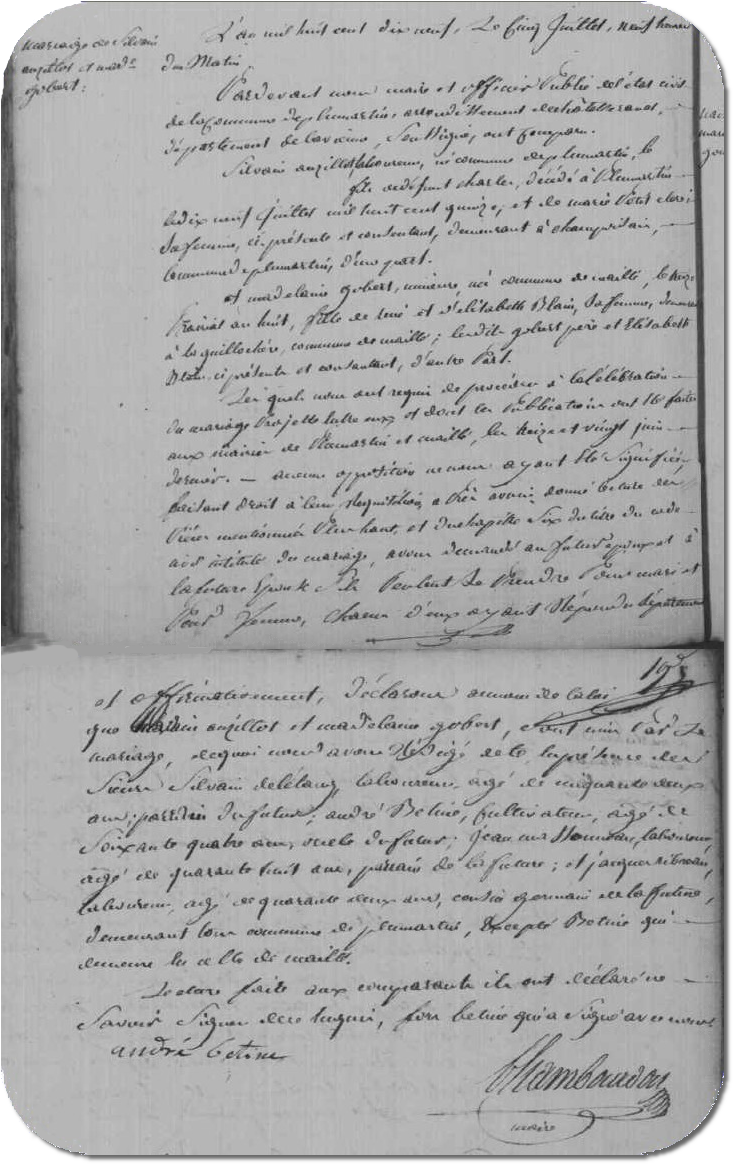 mariage de Silvain
anzillos et made
gobert:
L'an mil huit cent dix neuf, Le Cinq Juillet, neuf heures
du Matin,
Pardevant nous maire et officier Public de l'état civil
de la Commune de plumartin, arrondissement de châtellerand,
département de la vienne, Soussigné, ont Comparu.
Silvain anzillos laboureur, né commune de plumartin, le
fils de défunt charles, décédé à Plumartin
le dix neuf Juillet mil huit cent quinze, et de marie Petit
Sa femme, ci présente et consentant, demeurant à
commune de plumartin, d'une part.
et madelaine gobert, mineure, née commune de maillé, le
Prairial an huit, fille de rené et d'élisabeth Blain, Sa femme, demeurant
à la guillochère, commune de maillé; le dit gobert père et Elisabeth
Blain ci présents et consentant, d'autre Part.
Les quels nous ont requis de procéder à la célébration
du mariage Projetté entre eux et dont les Publications ont été faites
aux mairies de Plumartin et maillé, les treize et vingt juin
dernier. — aucune opposition ne nous ayant été Signifiée,
faisant droit à leur Requisition, après avoir donné lecture des
Pièces mentionnées Plus haut, et du chapitre Six du titre du code
civil intitulé du mariage, avons demandé au futur époux et à
la future Epouse S'ils Veulent Se Prendre Pour mari et
Pour femme, chacun d'eux ayant Répondu Séparément
et affirmativement, déclarons au nom de la loi
que Silvain anzillos et madelaine gobert, Sont unis Par Le
mariage, de quoi nous avons Rédigé acte en présence des
Sieurs Silvain delétang, laboureur, agé de cinquante deux
ans, parrain du futur; andré Betine, Cultivateur, agé de
Soixante quatre ans, oncle du futur; Jean laboureur,
agé de quarante huit ans, parrain de la future; et jacques
laboureur, agé de quarante deux ans, cousin germain de la future,
demeurant tous commune de plumartin, Excepté Betine qui
demeure en celle de maillé.
Lecture faite aux comparants ils ont déclaré ne
Savoir Signer de ce enquis, fors betine qui a Signé avec nous
andré betine
Chambourdon
maire